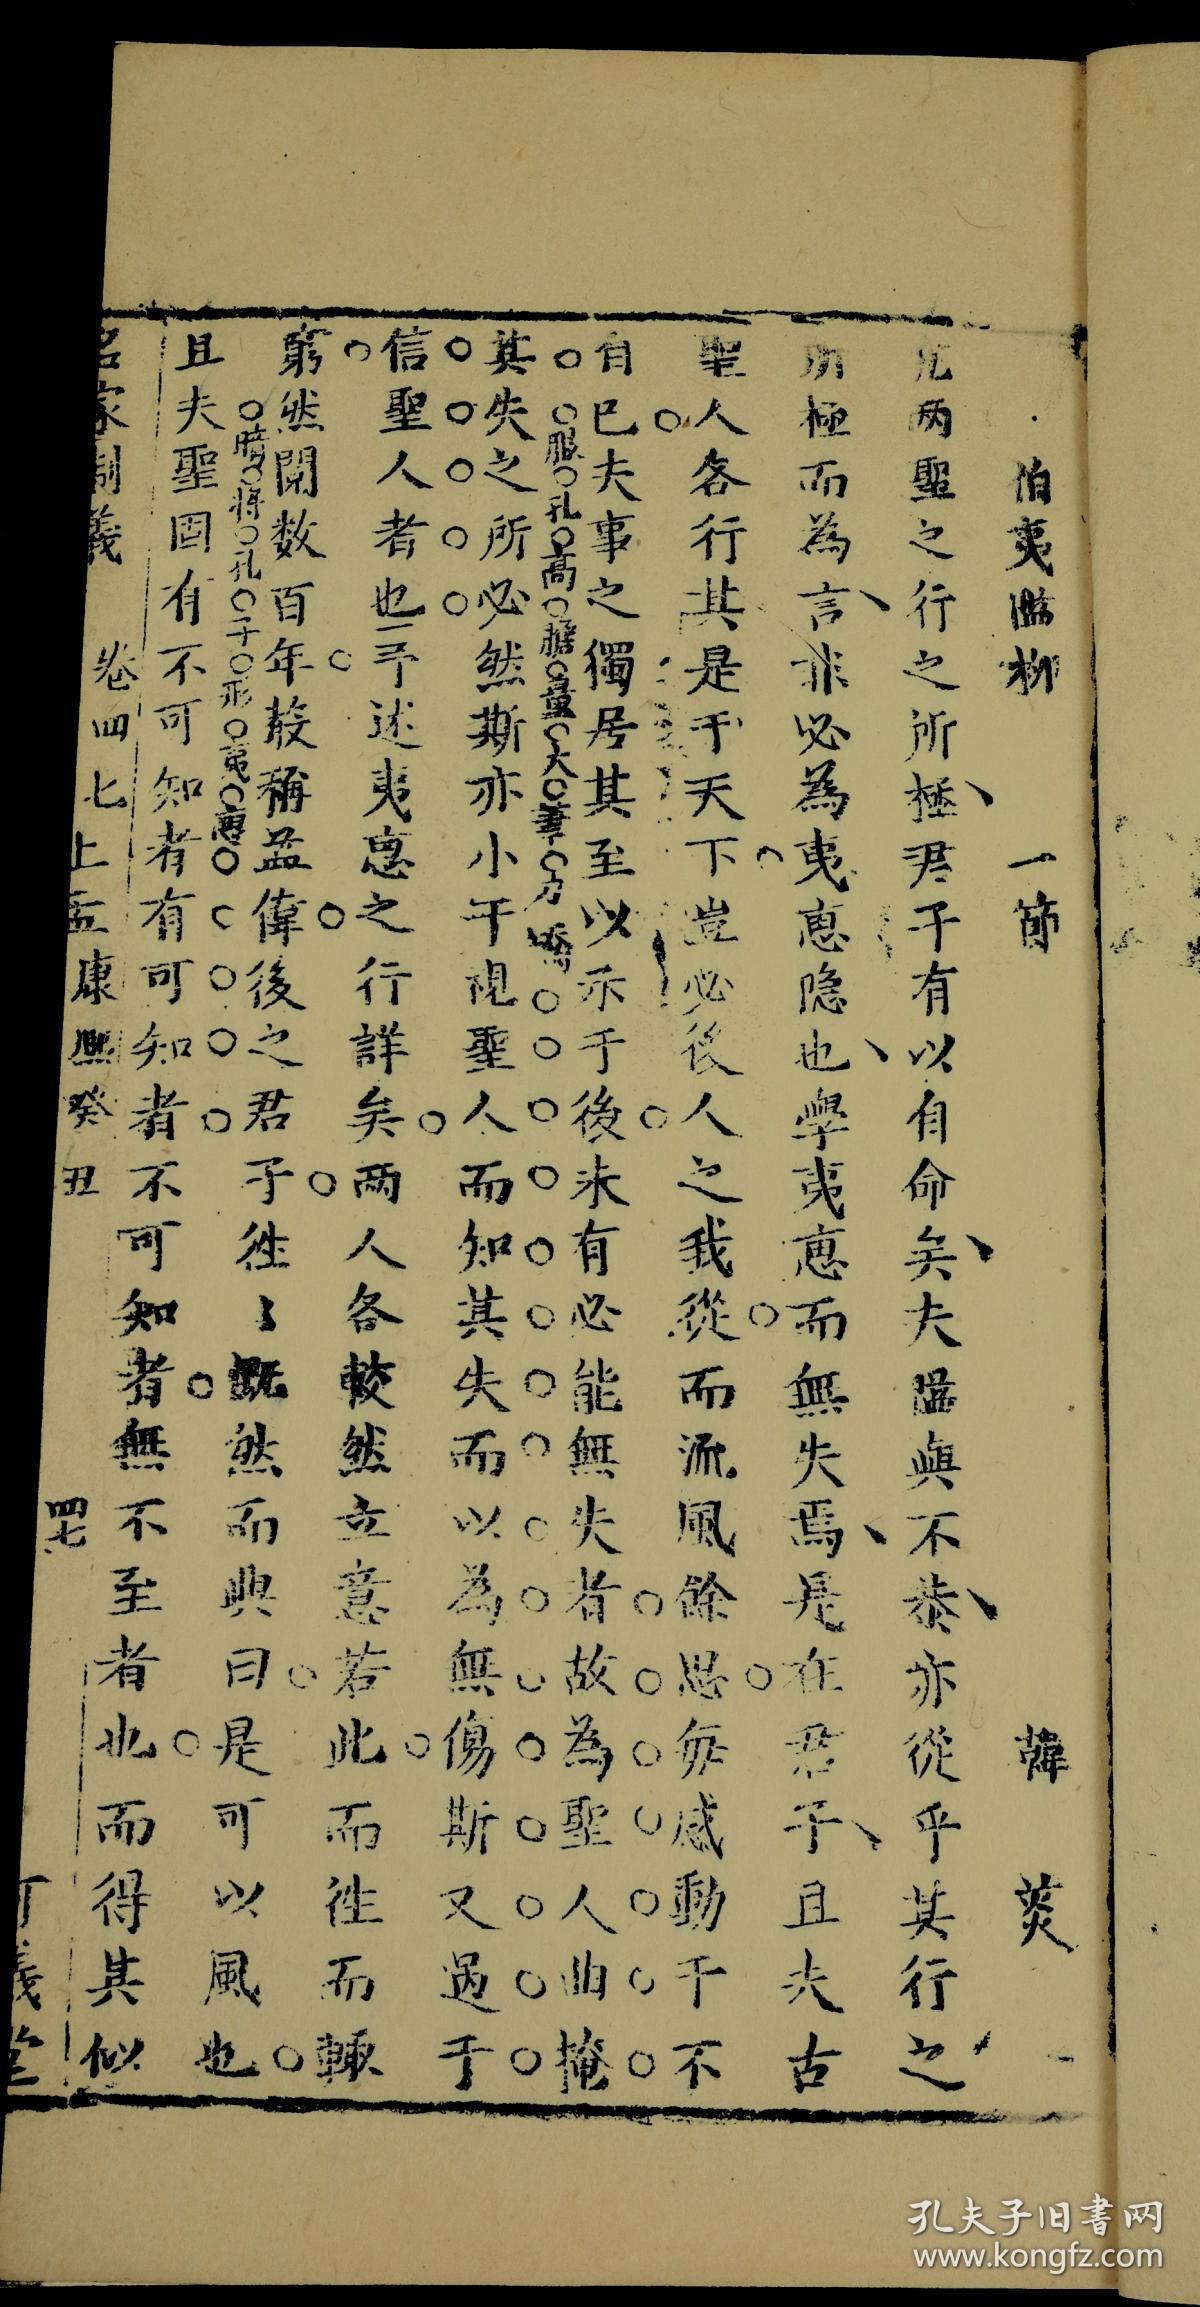 伯夷隘柳 一節 韓菼
兩聖之行之所極君子有以自命矣夫隘與不恭亦從乎其行之
所極而為言非必為夷惠隐也學夷惠而無失焉是在君子且夫古
聖人各行其是于天下豈必後人之我從而流風餘思每感動于不
自已夫事之獨居其至以示于後未有必能無失者故為聖人曲掩
眼孔高膽量大筆力
其失之所必然斯亦小干視聖人而知其失而以為無傷斯又過于
信聖人者也予述夷惠之行詳矣兩人各較然立意若此而徃而輙
窮然閱数百年㪚稱益偉後之君子徃〻慨然而興曰是可以風也
暗將孔子形夷惠
且夫聖固有不可知者有可知者不可知者無不至者也而得其似
名家制義 卷四七 上孟 康熙癸丑 四七 可義堂
孔夫子旧书网
www.kongfz.com